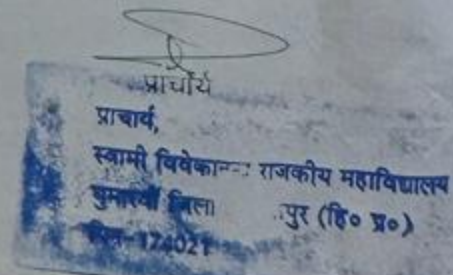 प्राचार्य
प्राचार्य,
स्वामी विवेकान राजकीय महाविद्यालय
घुमारवीं जिला पुर (हि० प्र०)
पिन-174021